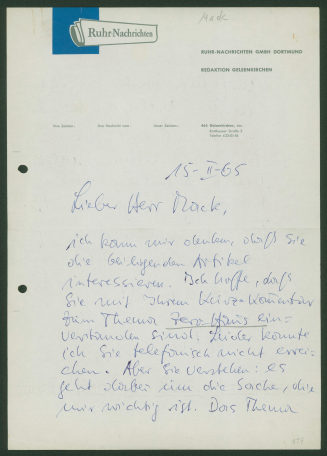 Mack
Ruhr-Nachrichten
RUHR-NACHRICHTEN GMBH DORTMUND
REDAKTION GELSENKIRCHEN
Ihre Zeichen Ihre Nachricht vom Unsere Zeichen 466 Gelsenkirchen, den
15-II-65
Lieber Herr Mack,
ich kann mir denken, daß Sie
die beiliegenden Artikel
interessieren. Ich hoffe, daß
Sie mit Ihrem Kurz-Kommentar
zum Thema Zero-Haus ein=
verstanden sind. Leider konnte
ich Sie telefonisch nicht errei=
chen. Aber Sie verstehen: es
geht dabei um die Sache, die
mir wichtig ist. Das Thema